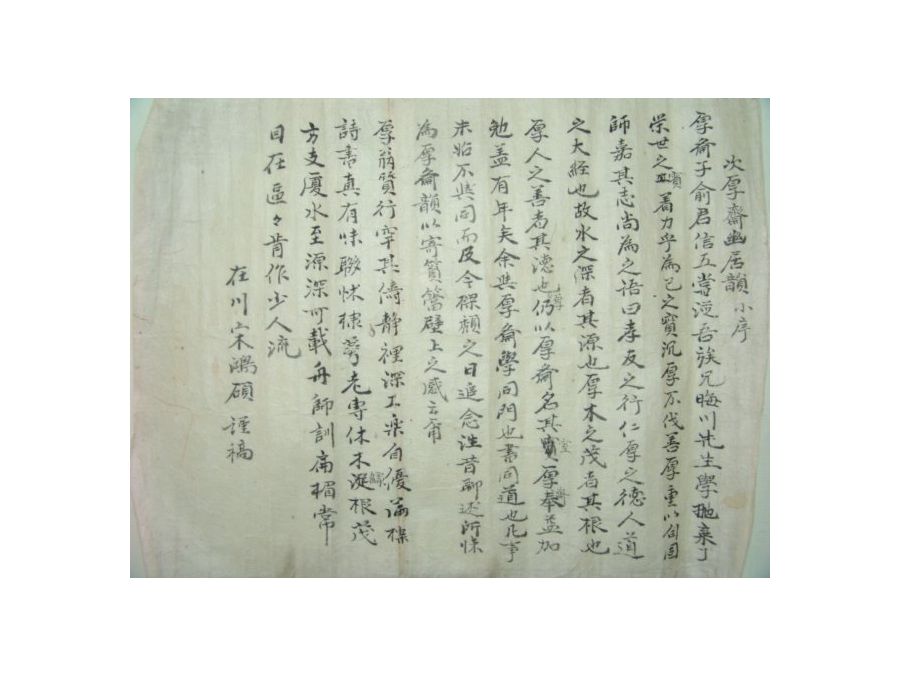 次厚齋幽居韻小序
厚齋子俞君信五嘗從吾族兄晦川先生學抛棄了
榮世之寶着力乎為己之寶沉厚不伐善厚重以自固
師嘉其志尚為之語曰孝友之行仁厚之德人道
之大經也故水之深者其源也厚木之茂者其根也
厚人之善者其德也仍以厚齋名其室厚齋奉益加
勉盖有年矣余與厚齋學同門也書同道也凡事
未始不與同而及今操頹之日追念洼昔聊述所懷
為厚齋韻以寄質警壁上之感云甭
厚翁質行罕其儔靜裡深工樂自優滿樑
詩書真有味聯牀棣萼老專休木凝緣根茂
方支廈水至源深可載舟師訓扁楣常
目在區々肯作少人流
在川宋鴻碩謹稿